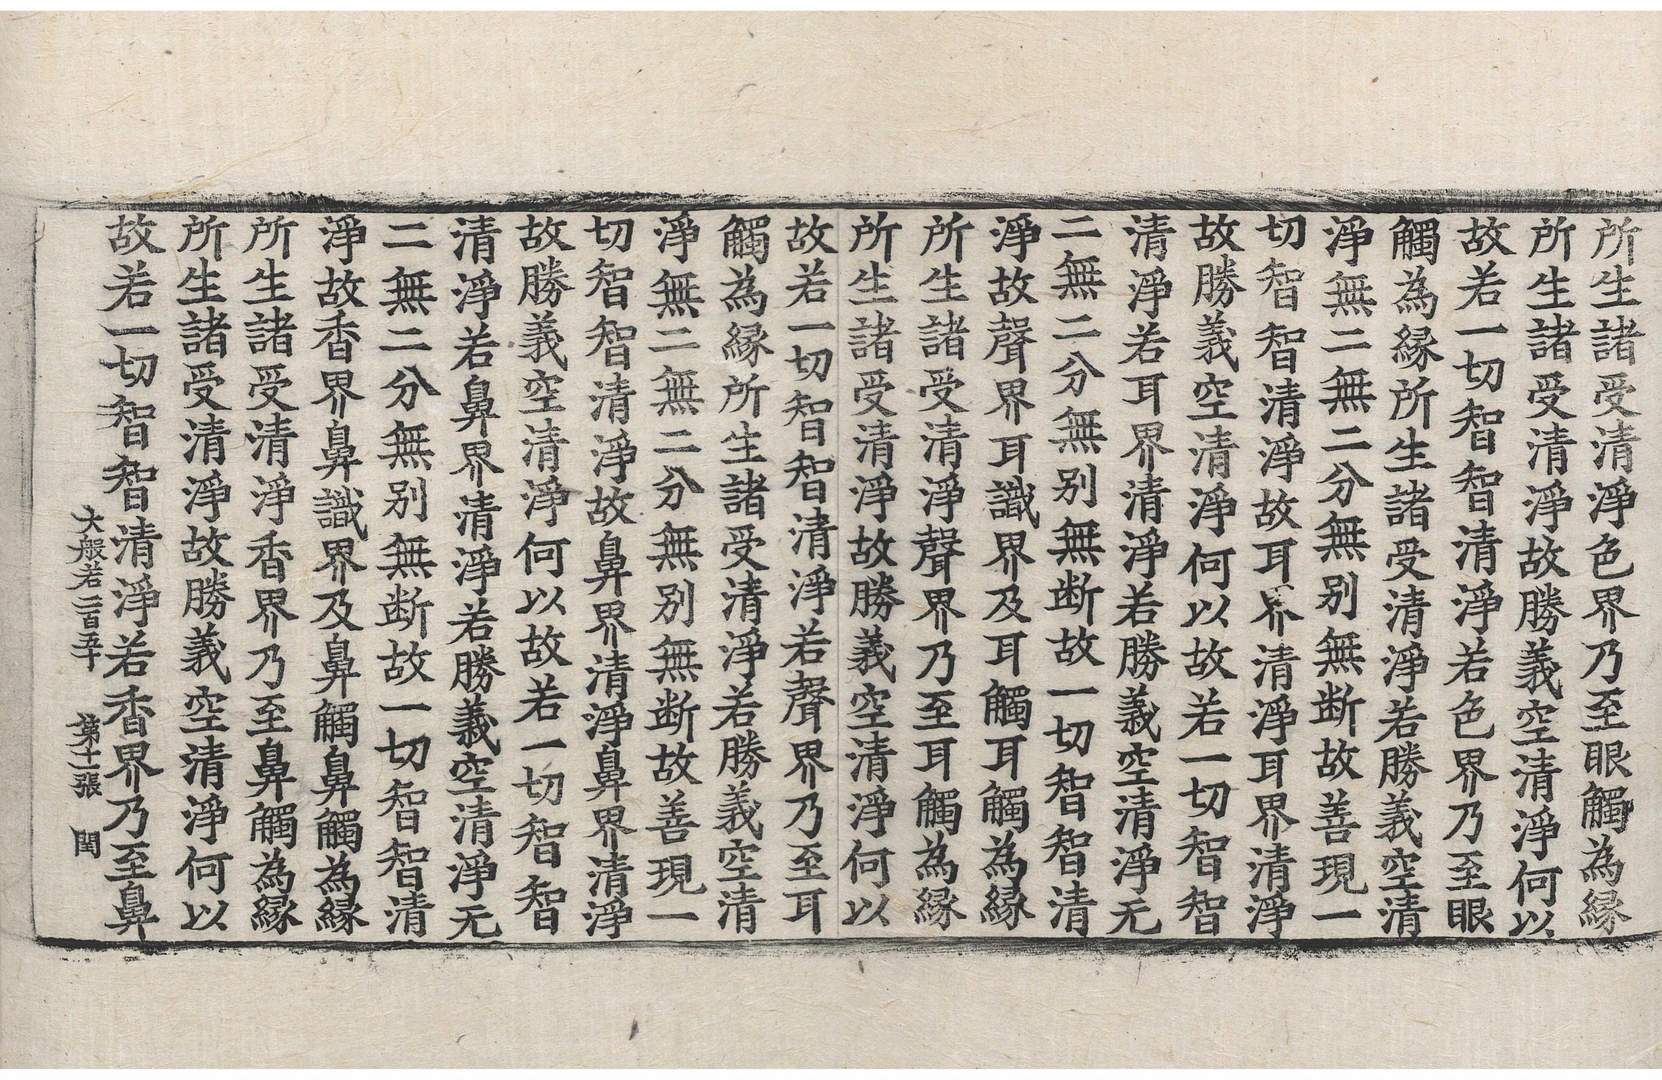 所生諸受清淨色界乃至眼觸為緣
所生諸受清淨故勝義空清淨何以
故若一切智智清淨若色界乃至眼
觸為緣所生諸受清淨若勝義空清
淨無二無二分無別無断故善現一
切智智清淨故耳界清淨耳界清淨
故勝義空清淨何以故若一切智智
清淨若耳界清淨若勝義空清淨无
二無二分無别無断故一切智智清
淨故聲界耳識界及耳觸耳觸為緣
所生諸受清淨聲界乃至耳觸為緣
所生諸受清淨故勝義空清淨何以
故若一切智智清淨若聲界乃至耳
觸為緣所生諸受清淨若勝義空清
淨無二無二分無別無断故善現一
切智智清淨故鼻界清淨鼻界清淨
故勝義空清淨何以故若一切智智
清淨若鼻界清淨若勝義空清淨无
二無二分無别無断故一切智智清
淨故香界鼻識界及鼻觸鼻觸為緣
所生諸受清淨香界乃至鼻觸為緣
所生諸受清淨故勝義空清淨何以
故若一切智智清淨若香界乃至鼻
大般若二百五十 第十一張 閏